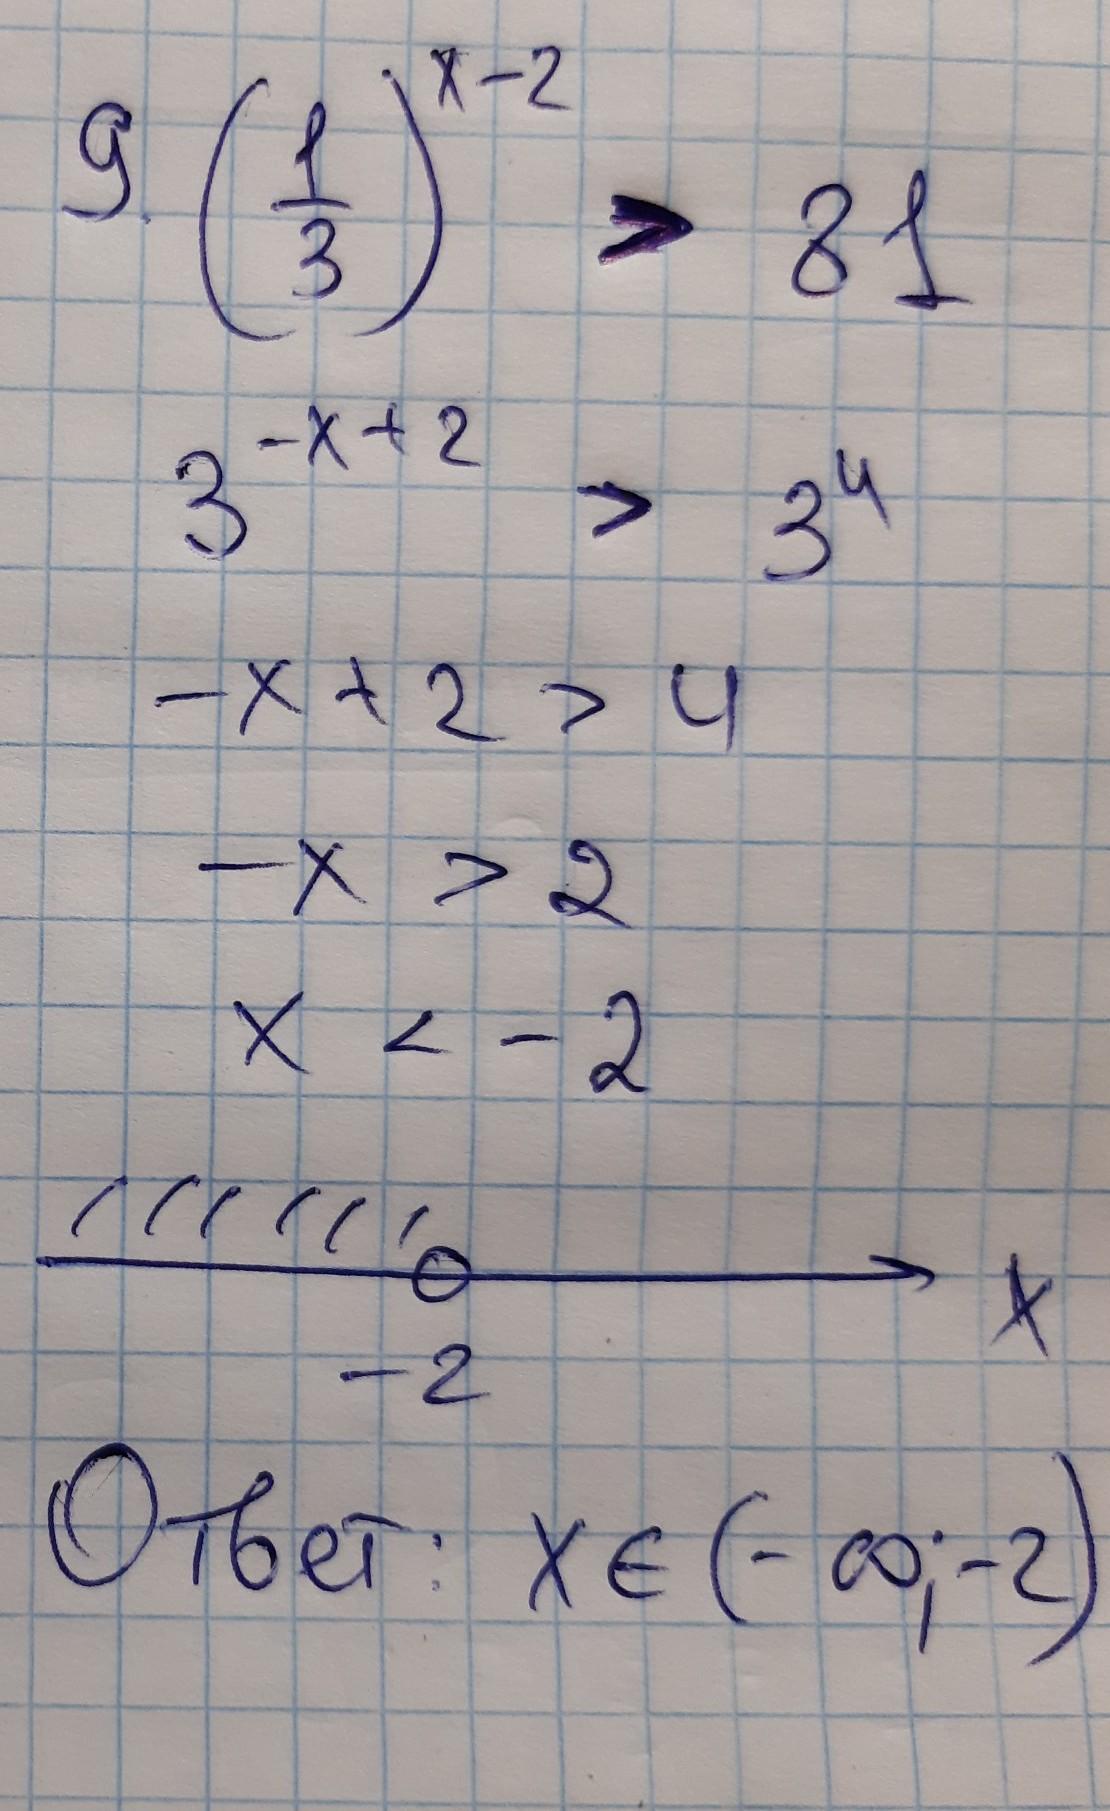 9. (1/3)^(x-2) > 81
3^(-x+2) > 3^4
-x + 2 > 4
-x > 2
x < -2
x
-2
Ответ: x ∈ (-∞; -2)